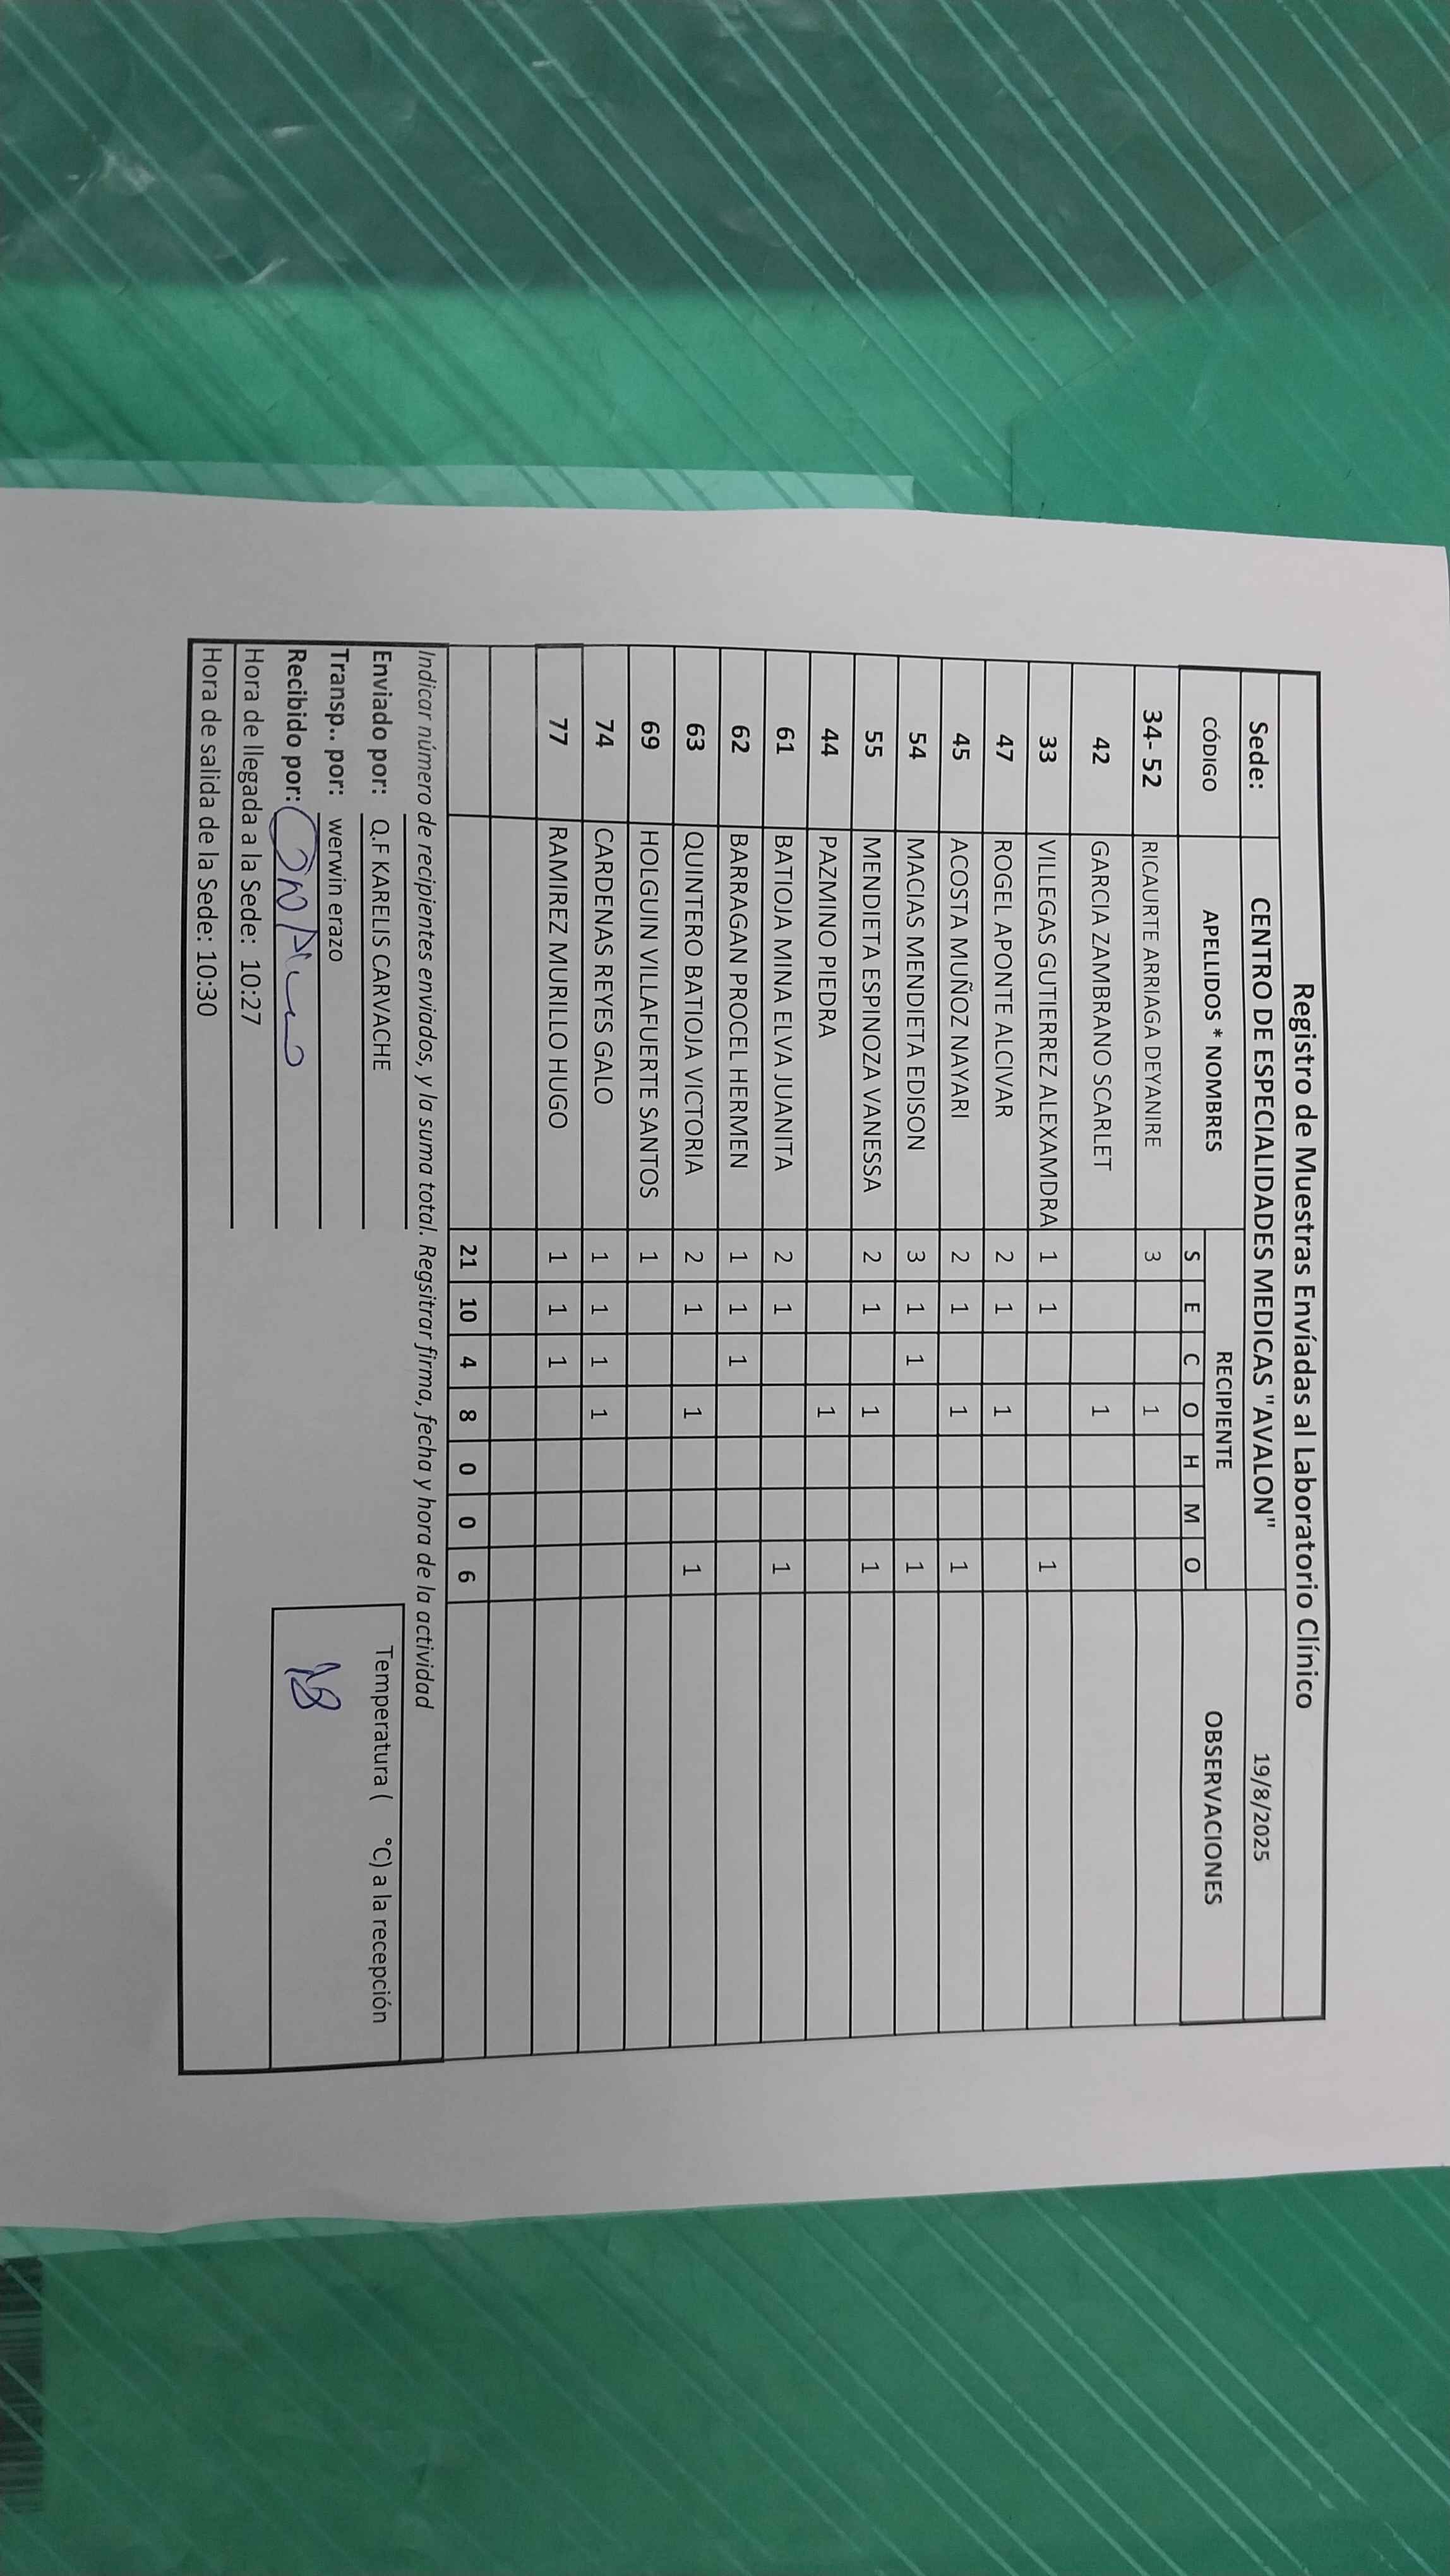 Registro de Muestras Envíadas al Laboratorio Clínico
Sede: CENTRO DE ESPECIALIDADES MEDICAS "AVALON" 19/8/2025
CÓDIGO APELLIDOS * NOMBRES RECIPIENTE OBSERVACIONES
S E C O H M O
34- 52 RICAURTE ARRIAGA DEYANIRE 3 1
42 GARCIA ZAMBRANO SCARLET 1
33 VILLEGAS GUTIERREZ ALEXAMDRA 1 1 1
47 ROGEL APONTE ALCIVAR 2 1 1
45 ACOSTA MUÑOZ NAYARI 2 1 1 1
54 MACIAS MENDIETA EDISON 3 1 1 1
55 MENDIETA ESPINOZA VANESSA 2 1 1 1
44 PAZMINO PIEDRA 1
61 BATIOJA MINA ELVA JUANITA 2 1 1
62 BARRAGAN PROCEL HERMEN 1 1 1
63 QUINTERO BATIOJA VICTORIA 2 1 1 1
69 HOLGUIN VILLAFUERTE SANTOS 1
74 CARDENAS REYES GALO 1 1 1 1
77 RAMIREZ MURILLO HUGO 1 1 1
21 10 4 8 0 0 6
Indicar número de recipientes enviados, y la suma total. Regsitrar firma, fecha y hora de la actividad
Enviado por: Q.F KARELIS CARVACHE Temperatura ( °C) a la recepción
Transp.. por: werwin erazo
Recibido por: 18
Hora de llegada a la Sede: 10:27
Hora de salida de la Sede: 10:30